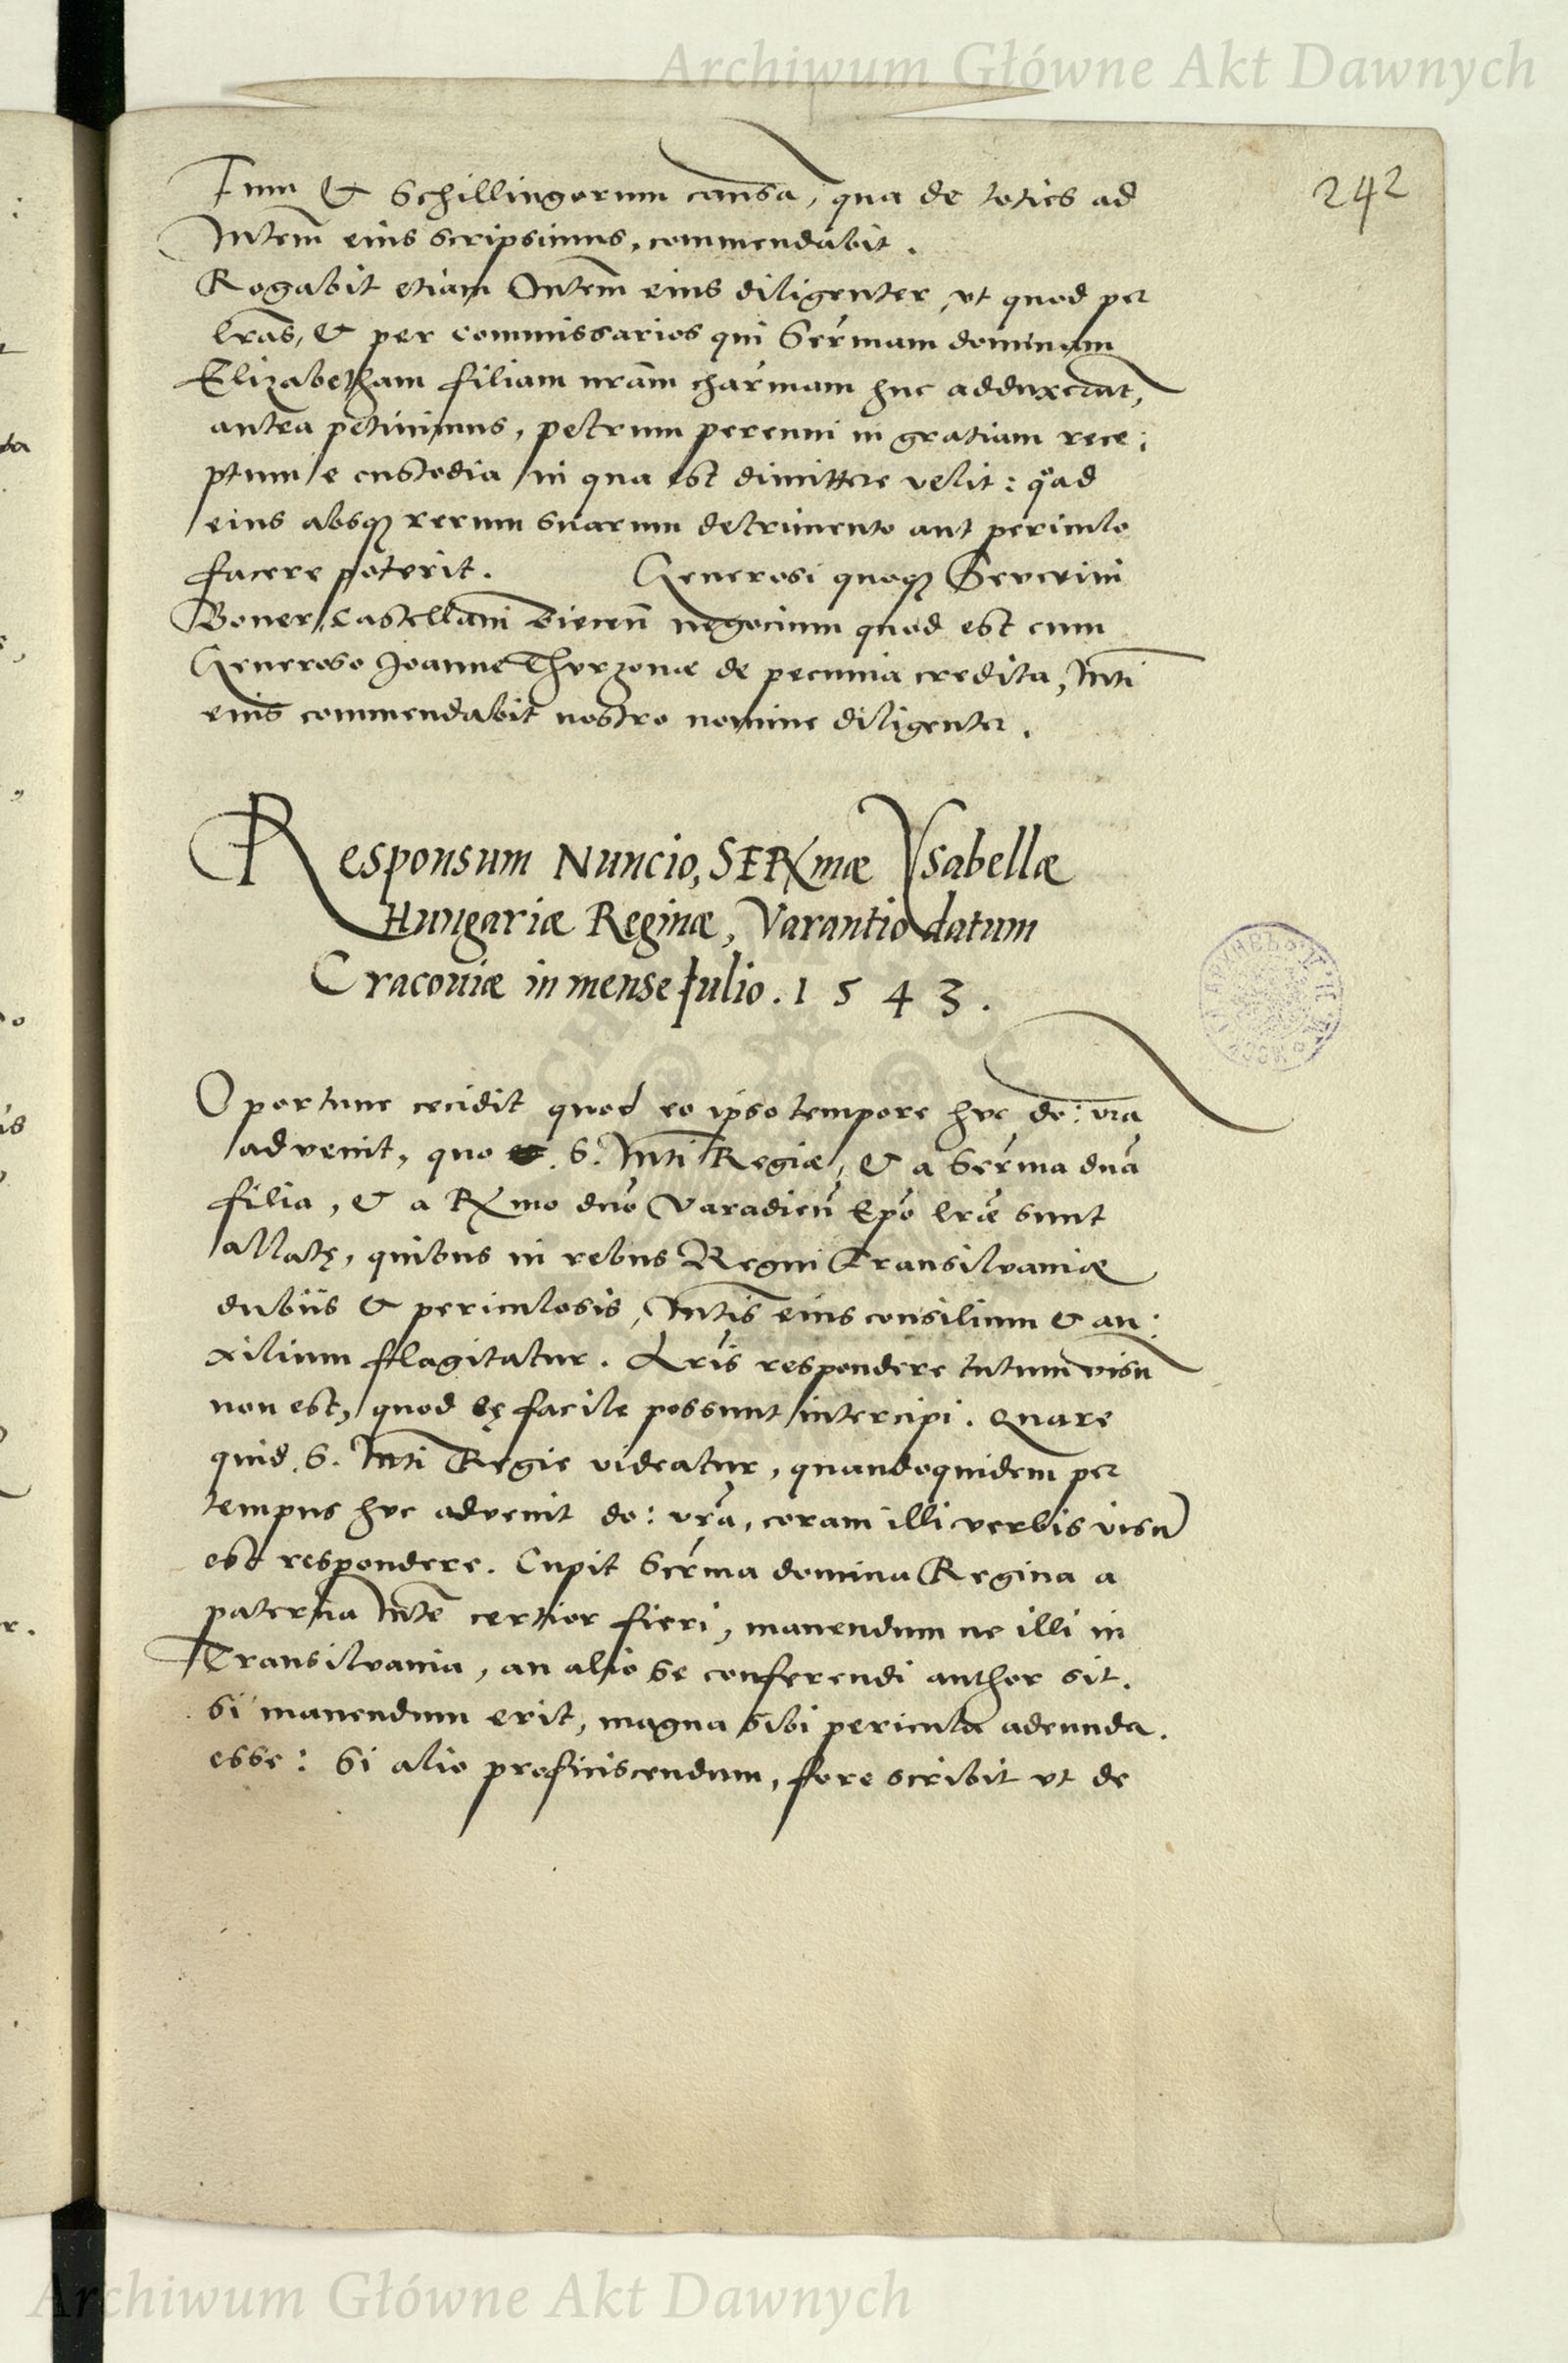 Archiwum Główne Akt Dawnych
242
Tum & Schillingorum causa, qua de toties ad
Mtem̄ eius scripsimus, commendabit.
Rogabit etiam Mtem̄ eius diligenter, ut quod per
lrās, & per commissarios qui Serm̄am dominam
Elizabetham filiam nrām charm̄am huc adduxerāt,
antea petiuimus, petrum perenni in gratiam rece:
ptum e custodia in qua est dimittere velit: q̊ad
eius absq₃ rerum suarum detrimento aut periculo
facere poterit. Generosi quoq₃ Severini
Boner Castellani Biecen̄ negocium quod est cum
Generoso Joanne Thurzonæ de pecunia credita, Mti
eius commendabit nostro nomine diligenter.
Responsum Nuncio, SERmæ Ysabellæ
Hungariæ Reginæ, Varantio datum
Cracoviæ in mense Julio. 1543.
Oportune cecidit quod eo ipso tempore huc do: vrā
advenit, quo S. Mti Regiæ, & a Serm̄a dnā
filia, & a Rmo dnō Varadien̄ Epō lrǣ sunt
allatę, quibus in rebus Regni Transilvaniæ
dubiis & periculosis, Mtis̄ eius consilium & au:
xilium flagitatur. Lris̄ respondere tutum visū
non est, quod eę facile possunt intercipi. Quare
quid S. Mti Regie videatur, quandoquidem per
tempus huc advenit do: vrā, coram illi verbis visū
est respondere. Cupit Serm̄a domina Regina a
paterna Mtē certior fieri, manendum ne illi in
Transilvania, an alio se conferendi author sit.
Si manendum erit, magna sibi pericula adeunda
esse: Si alio proficiscendum, fore scribit ut de
Archiwum Główne Akt Dawnych